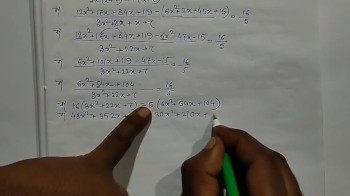 or 12x²+17x+84x+119-(6x²+2x+45x+15) / 3x²+21x+x+7 = 16/5
or 12x²+17x+84x+119-6x²-47x-15 / 3x²+22x+7 = 16/5
or 6x²+101x+119-47x-15 / 3x²+22x+7 = 16/5
or 6x²+54x+104 / 3x²+22x+7 = 16/5
or 16(3x²+22x+7) = 5(6x²+54x+104)
or 48x²+352x 30x²+270x+